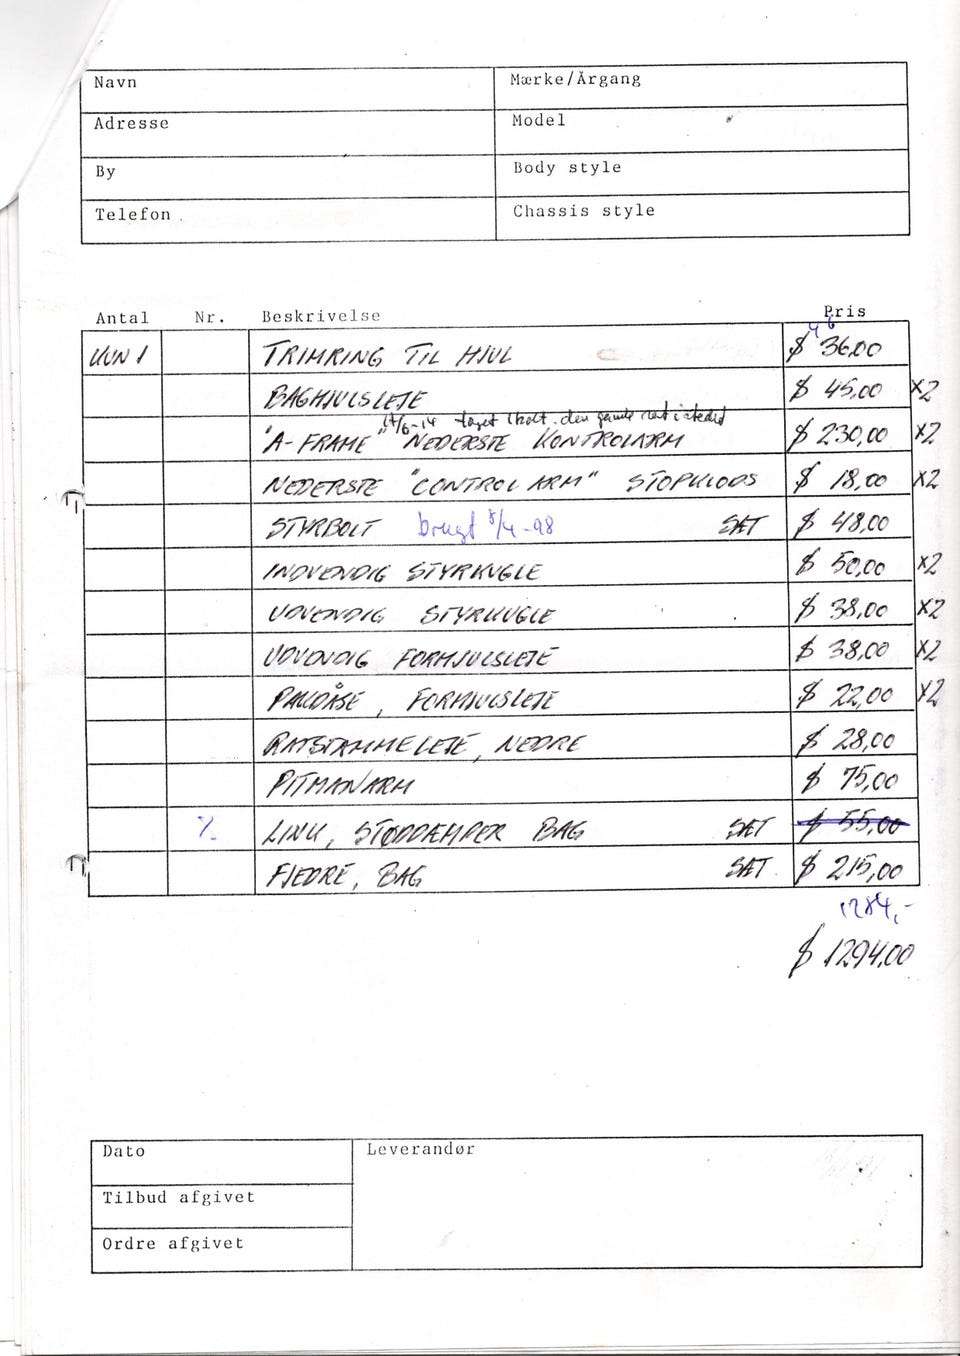 Navn Mærke/Årgang
Adresse Model
By Body style
Telefon Chassis style
Antal Nr. Beskrivelse Pris
46
KUN 1 TRIMRING TIL HJUL $ 36,00
BAGHJULSLEJE $ 45,00 X2
17/6-14 taget kolt. den gamle i stedet
"A-FRAME" NEDERSTE KONTROLARM $ 230,00 X2
NEDERSTE "CONTROL ARM" STOPKLODS $ 18,00 X2
STYRBOLT brugt 8/4-98 SÆT $ 48,00
INDVENDIG STYRKUGLE $ 50,00 X2
UDVENDIG STYRKUGLE $ 38,00 X2
UDVENDIG FORHJULSLEJE $ 38,00 X2
PAKDÅSE, FORHJULSLEJE $ 22,00 X2
RATSTAMMELEJE, NEDRE $ 28,00
PITMANARM $ 75,00
%. LINK, STØDDÆMPER BAG SÆT $ 55,00
FJEDRE, BAG SÆT $ 215,00
1284,-
$ 1294,00
Dato Leverandør
Tilbud afgivet
Ordre afgivet